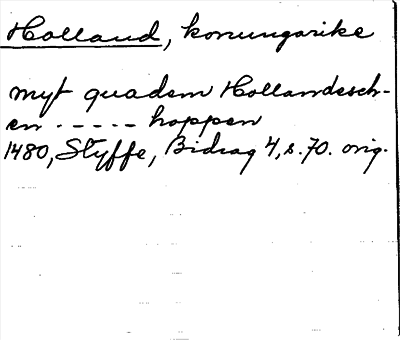 Holland, konungarike
myt quadem Hollandesch-
en . - - - - hoppen
1480, Styffe, Bidrag 4, s. 70. orig.